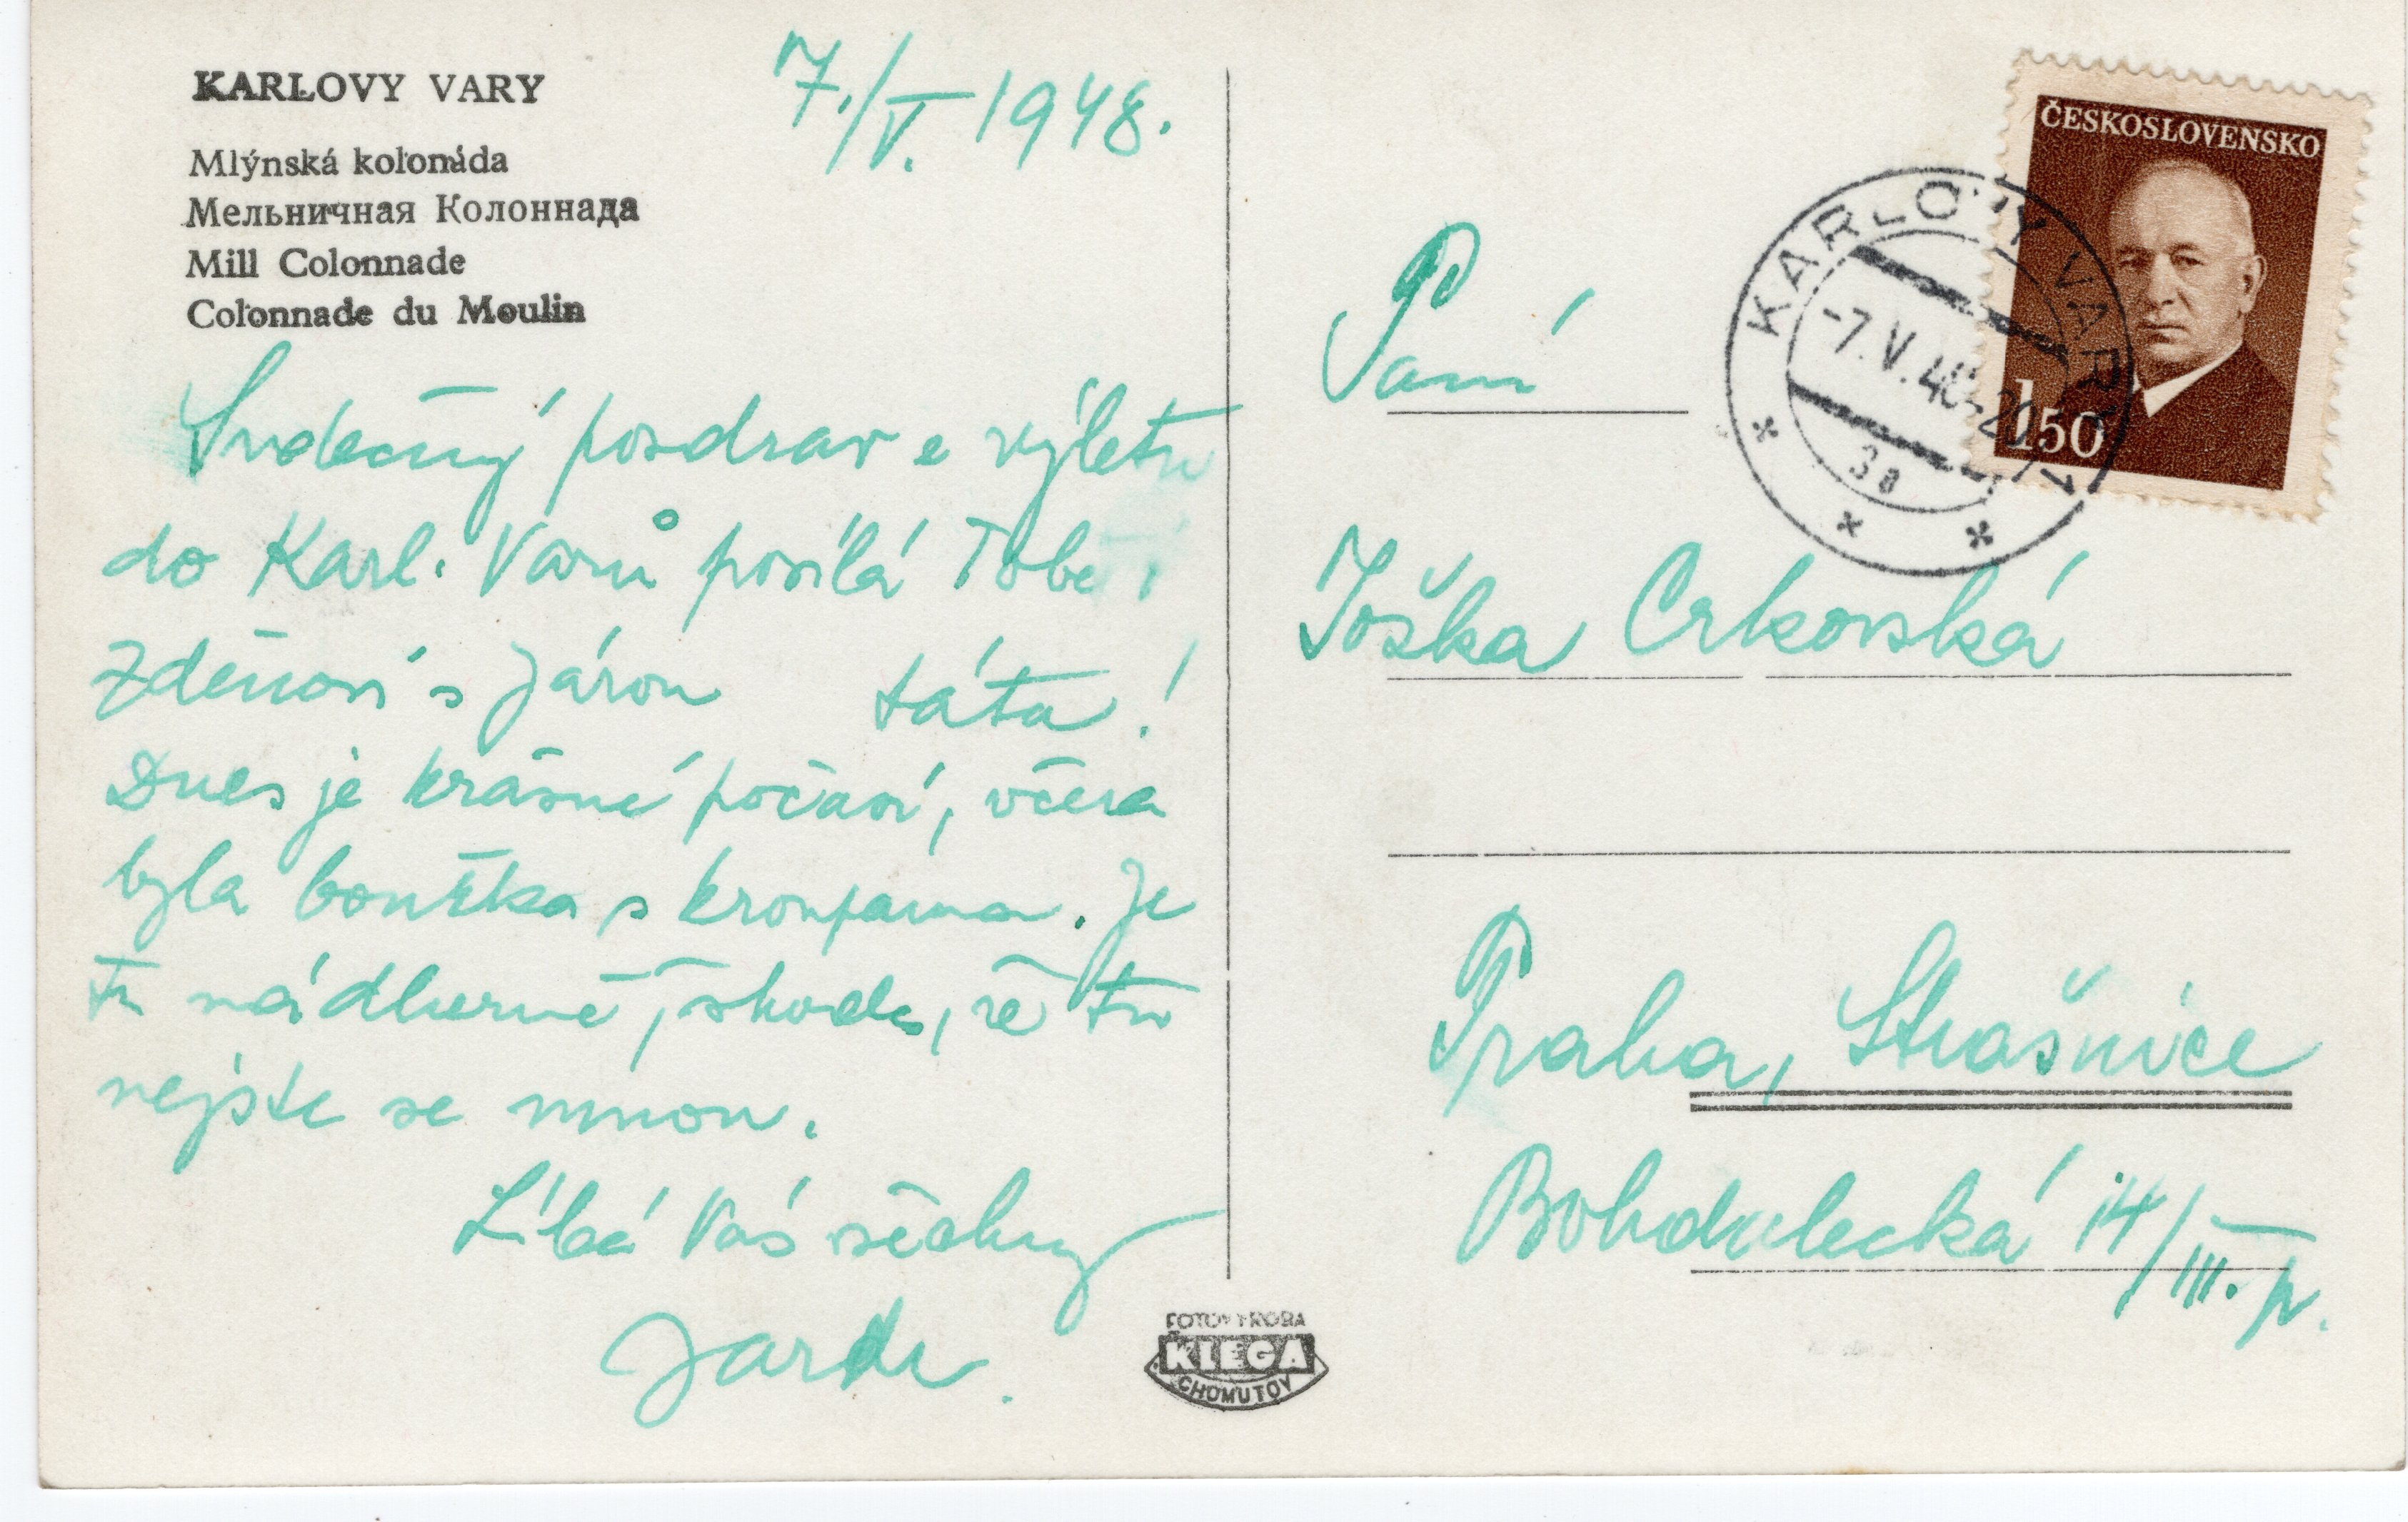 KARLOVY VARY
Mlýnská kolonáda
Мельничная Колоннада
Mill Colonnade
Colonnade du Moulin
7./V. 1948.
Srdečný pozdrav z výletu
do Karl. Varů posílá Tobě i
Zdeňovi s Járou táta!
Dnes je krásné počasí, včera
byla bouřka s kroupama. Je
tu nádherně, škoda, že tu
nejste se mnou.
Líbá Vás všechny
Jarda.
ČESKOSLOVENSKO
1.50
KARLOVY VARY 1
-7.V.48-20
3a
Paní
Joška Crkovská
Praha, Strašnice
Bohdalecká 14/III. p.
FOTOVÝROBA
KLEGA
CHOMUTOV